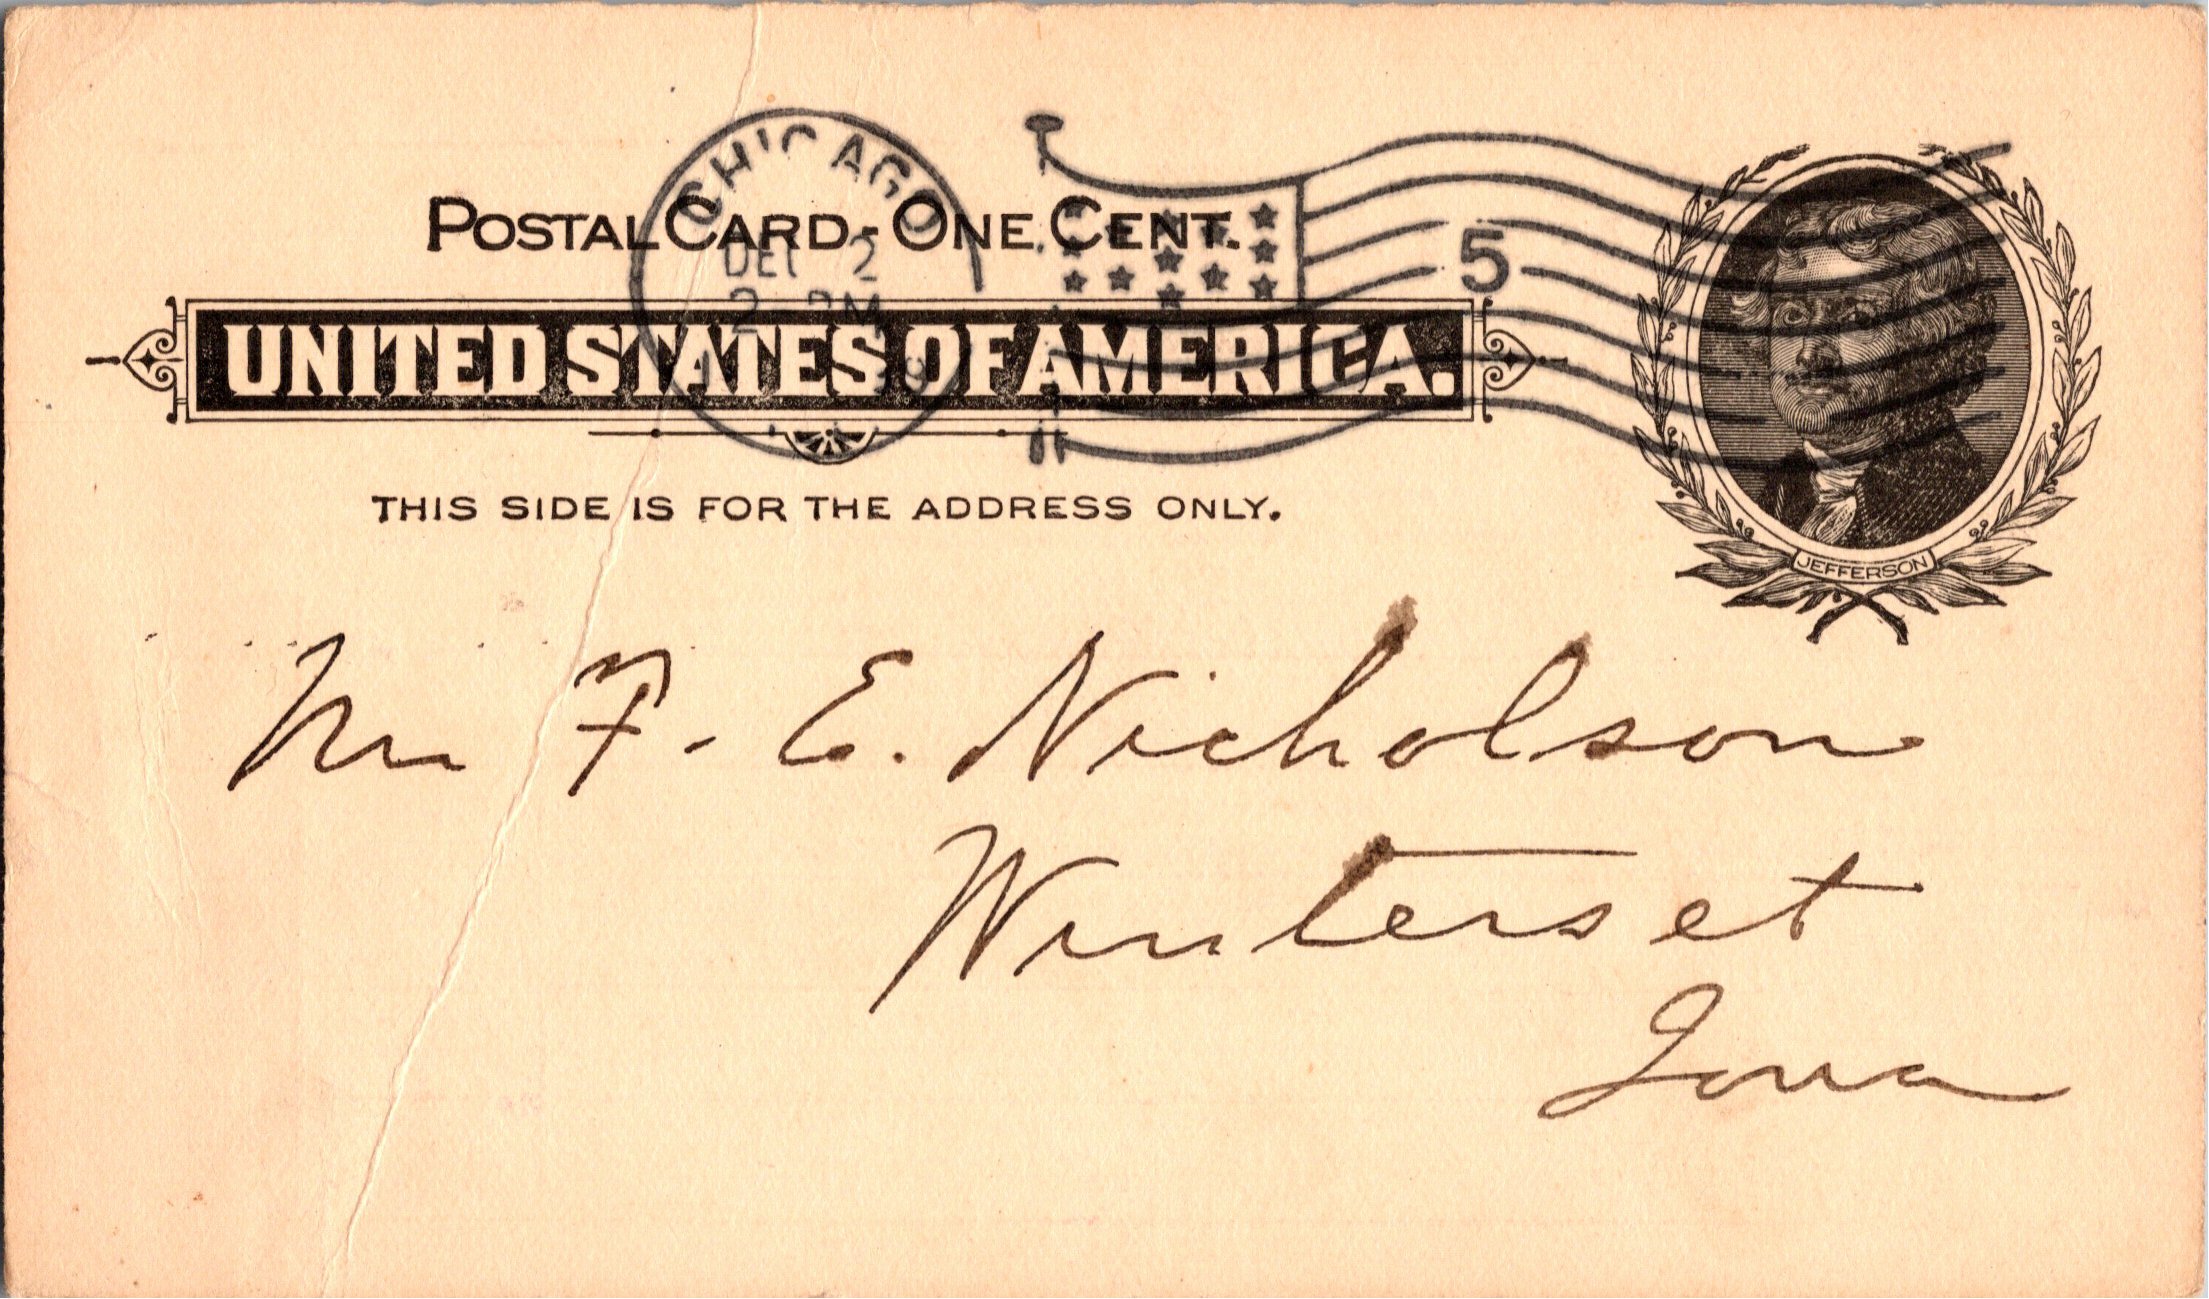 CHICAGO
DEC 2
2 PM
5
POSTAL CARD - ONE CENT.
UNITED STATES OF AMERICA.
THIS SIDE IS FOR THE ADDRESS ONLY.
JEFFERSON
Mr F. E. Nicholson
Winterset
Iowa